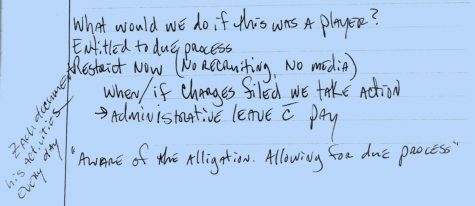 What would we do if this was a player?
Entitled to due process
Restrict Now (No recruiting, No media)
When/if charges filed we take action
→ Administrative leave c̄ pay
"Aware of the alligation. Allowing for due process"
Zach document
his activities
every day